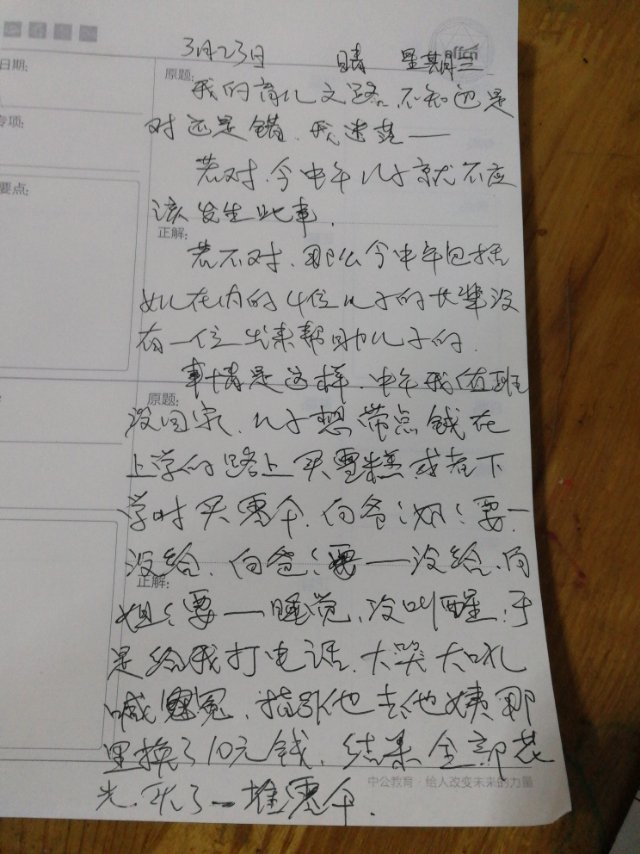 3月23日 晴 星期三
日期:
原题:
我的育儿之路,不知道是
对还是错,我迷茫——
专项:
若对,今中午儿子就不应
该发生此事.
要点:
正解:
若不对,那么今中午包括
在内的4位儿子的长辈没
有一位出来帮助儿子的.
事情是这样,中午我值班
原题:
没回家,儿子想带点钱在
上学的路上买雪糕或者下
学时买零食,向爷爷要—
没给,向爸爸要——没给,向
正解:
姐姐要——睡觉,没叫醒,于
是给我打电话,大哭大吼
喊冤,指引他去他姨那
里换了10元钱,结果全部花
光,买了一堆零食.
中公教育·给人改变未来的力量